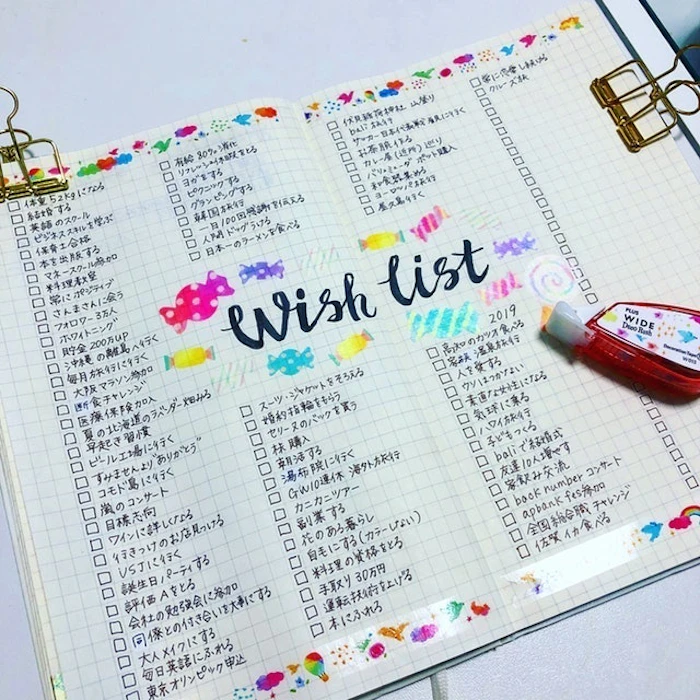 体重52kgになる
結婚する
英語のスクール
ビジネススキルを学ぶ
保育士合格
本を出版する
マネースクール参加
料理教室
常にポジティブ
さんまさんに会う
フォロワー3万人
ホワイトニング
貯金200万up
沖縄の離島へ行く
毎月旅行に行く
大阪マラソン参加
断食チャレンジ
医療保険加入
夏の北海道のラベンダー畑みる
早起き習慣
ビール工場に行く
すみませんより"ありがとう"
コモド島に行く
嵐のコンサート
目標志向
ワインに詳しくなる
行きつけのお店見つける
USJに行く
誕生日パーティする
評価Aをとる
会社の勉強会に参加
同僚との付き合いを大事にする
大人メイクにする
毎日英語にふれる
東京オリンピック申込
有給80%消化
リフレッシュ休暇をとる
ヨガをする
ピクニックする
グランピングする
韓国旅行
一日100回感謝を伝える
人間ドックうける
日本一のラーメンを食べる
wish list
スーツ・ジャケットをそろえる
婚約指輪をもらう
セリーヌのバックを買う
株購入
朝活する
湯布院に行く
GW10連休 海外旅行
カニカニツアー
副業する
花のある暮らし
自毛にする(カラーしない)
料理の資格をとる
手取り30万円
運転技術を上げる
本にふれる
伏見稲荷神社 山登り
bali 旅行
サッカー日本代表戦 見に行く
お茶肌作る
カレー屋(近所)巡り
バミューダ ポット購入
和食器集める
ヨーロッパ旅行
屋久島行く
2019
高知のカツオ食べる
家族と温泉旅行
人を愛する
ウソはつかない
素直な女性になる
気球に乗る
ハワイ旅行
子どもつくる
baliで結婚式
友達10人増やす
家飲み交流
back number コンサート
apbank fes参加
全国総合職チャレンジ
佐賀イカ食べる
常に恋愛し続ける
クルーズ旅
PLUS
WIDE
Deco Rush